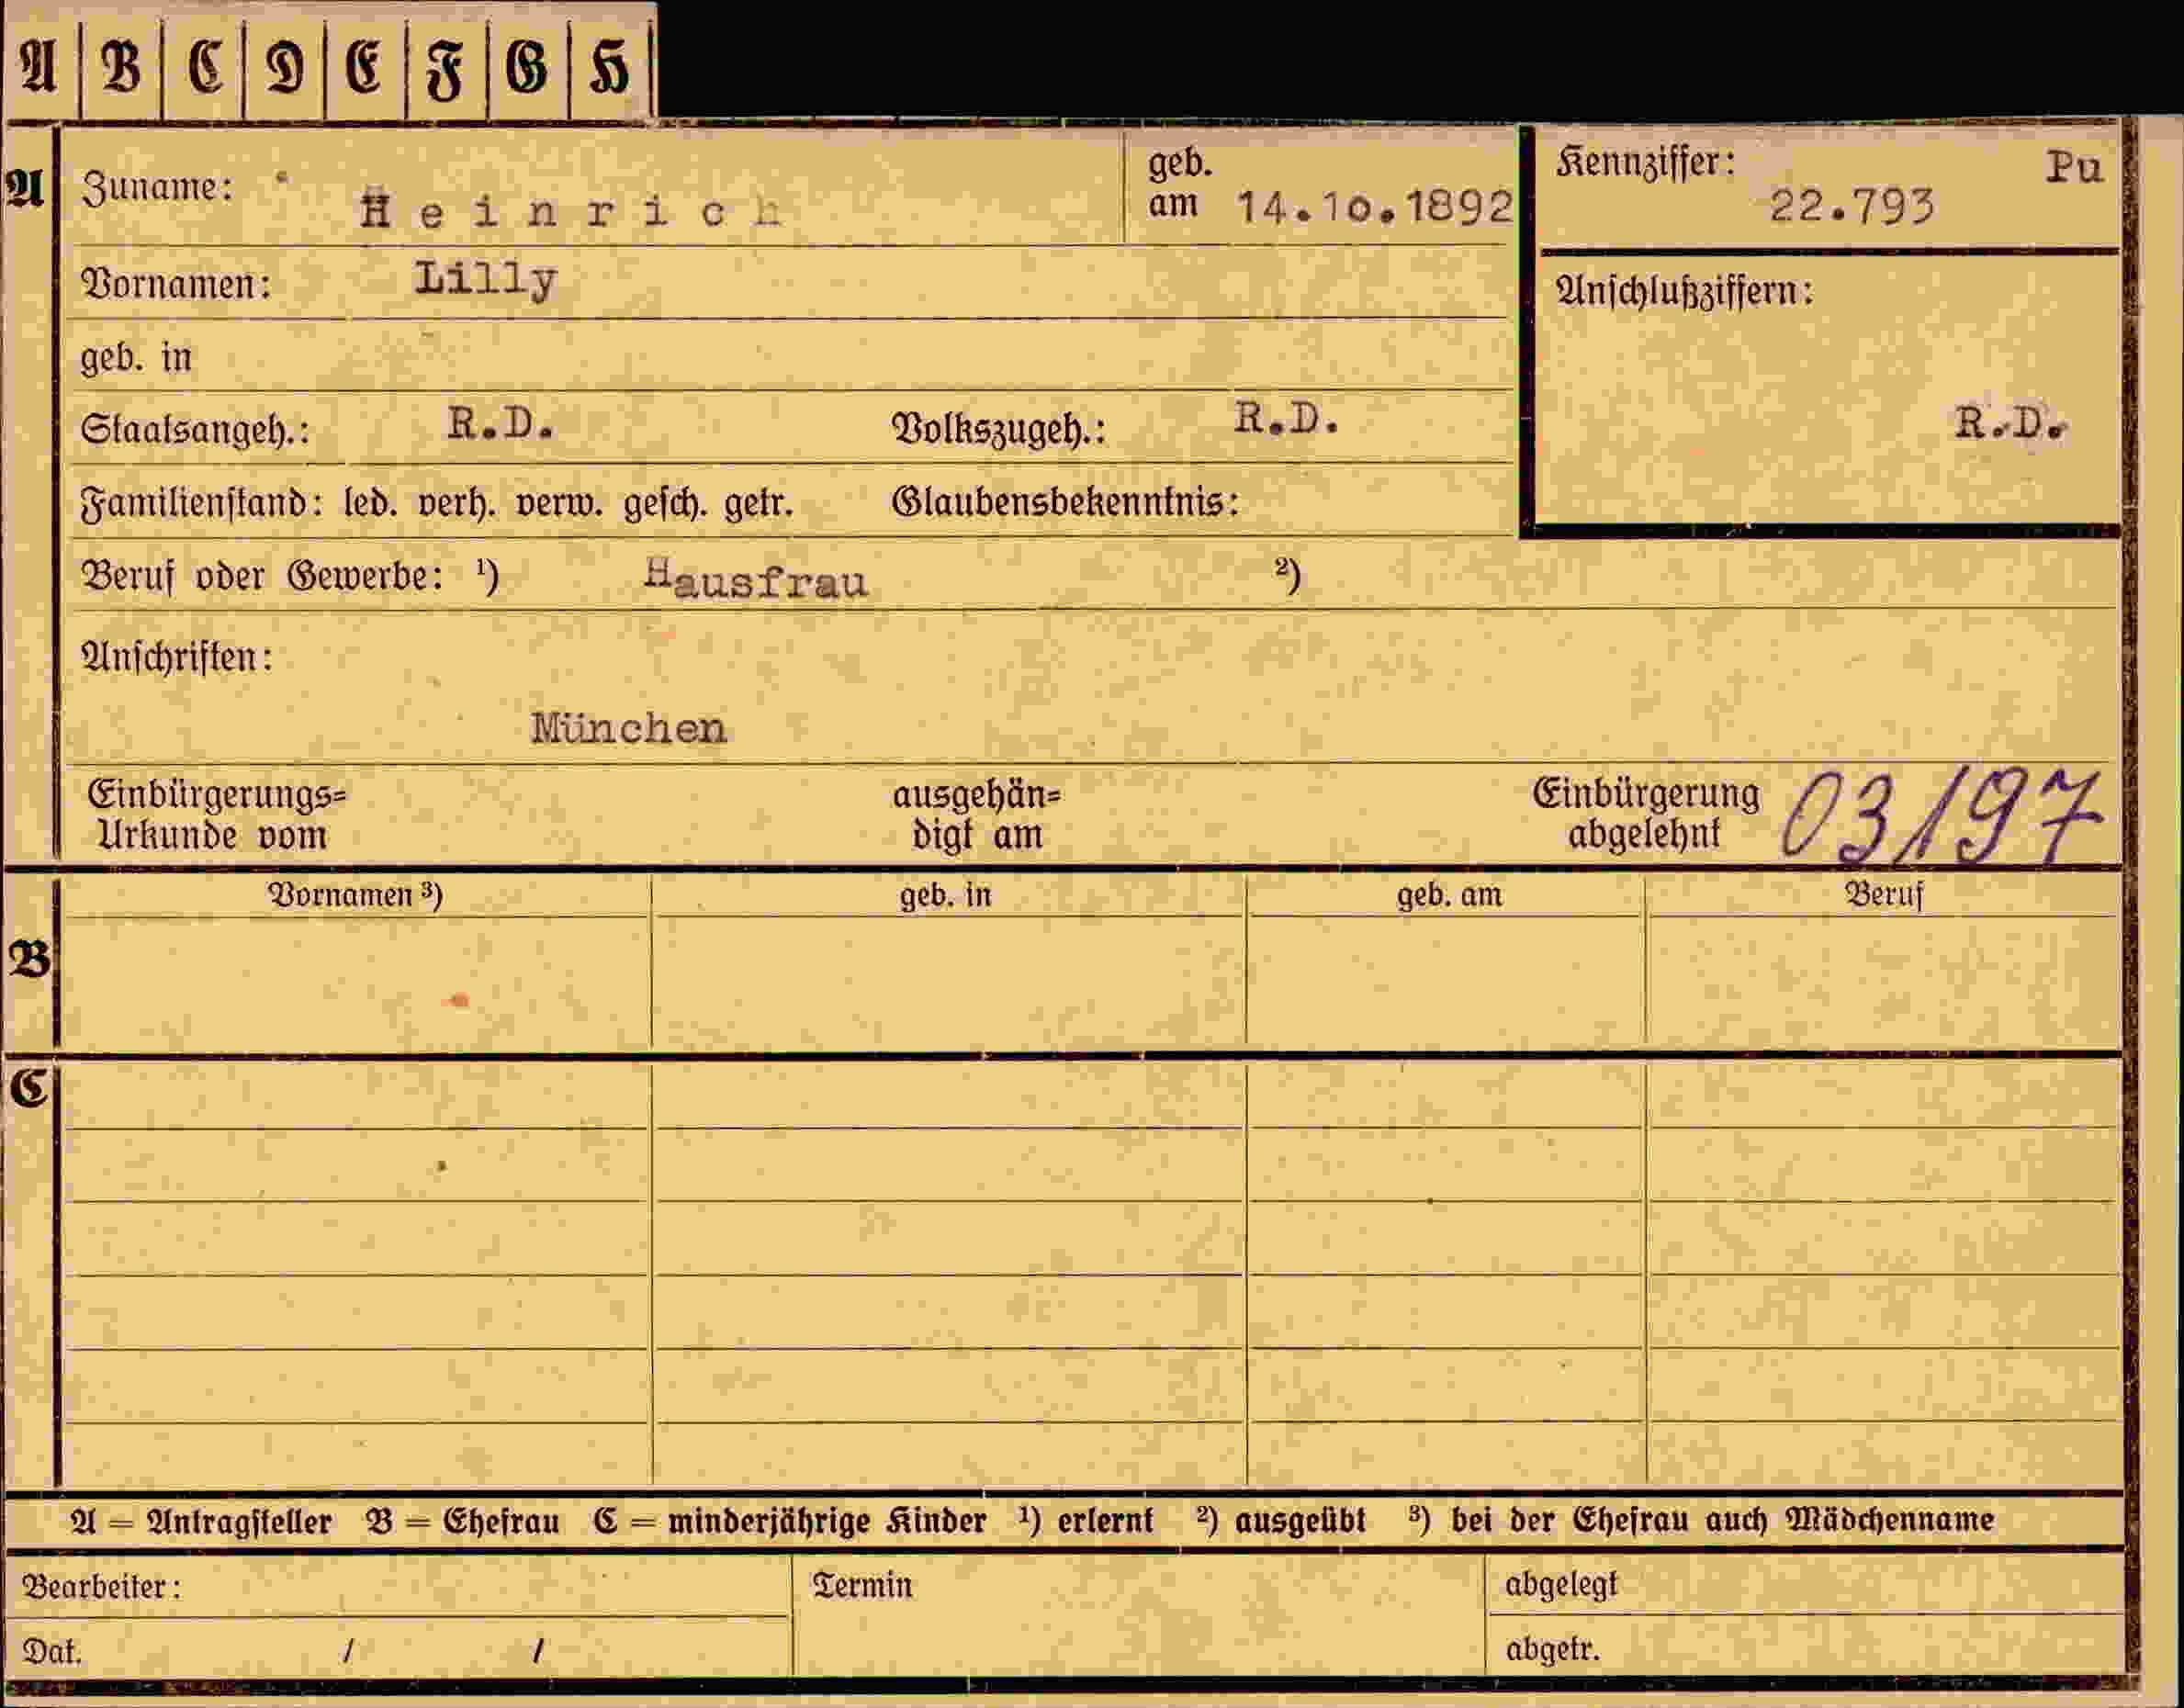 A B C D E F G H
A Zuname: Heinrich geb. am 14.10.1892 Kennziffer: 22.793 Pu
Vornamen: Lilly Anschlußziffern:
geb. in
Staatsangeh.: R.D. Volkszugeh.: R.D. R.D.
Familienstand: led. verh. verw. gesch. getr. Glaubensbekenntnis:
Beruf oder Gewerbe: ¹) Hausfrau ²)
Anschriften:
München
Einbürgerungs= ausgehän= Einbürgerung 03197
Urkunde vom digt am abgelehnt
Vornamen ³) geb. in geb. am Beruf
B
C
A = Antragsteller B = Ehefrau C = minderjährige Kinder ¹) erlernt ²) ausgeübt ³) bei der Ehefrau auch Mädchenname
Bearbeiter: Termin abgelegt
Dat. / / abgetr.